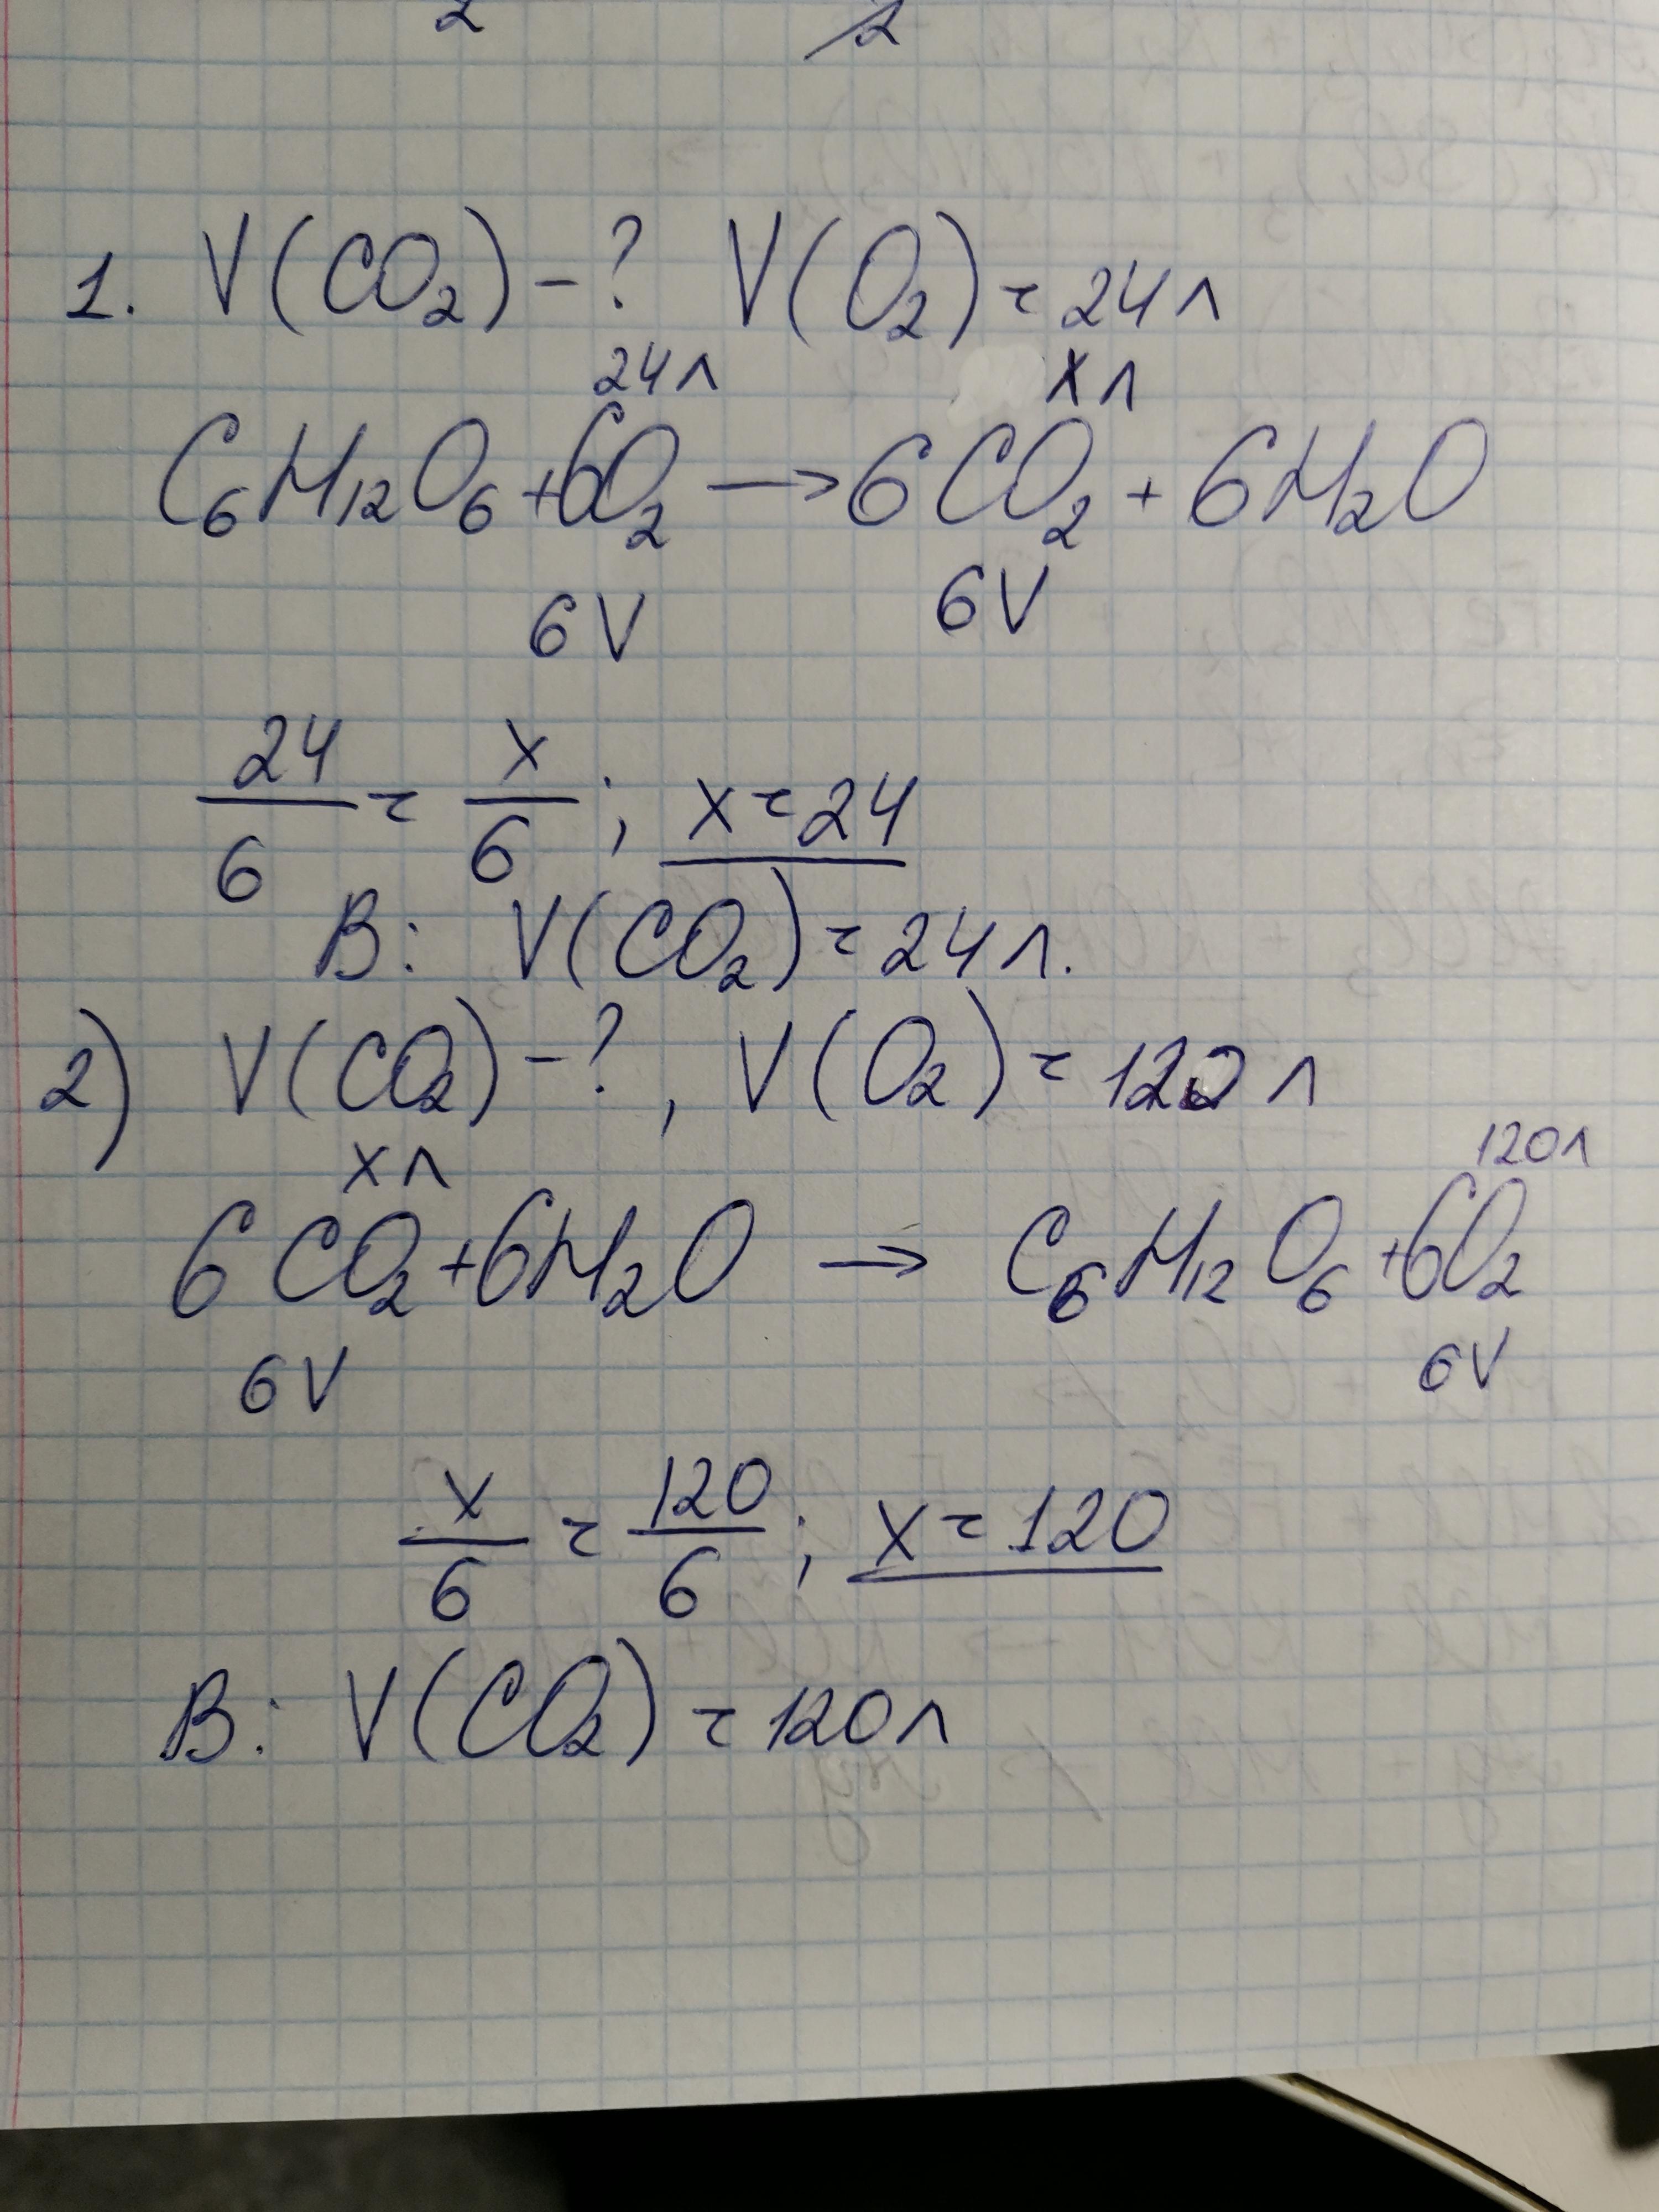 2 2
1. V(CO₂) – ? V(O₂) = 24л
24л xл
C₆H₁₂O₆ + 6O₂ → 6CO₂ + 6H₂O
6V 6V
24/6 = x/6 ; x = 24
В: V(CO₂) = 24л.
2) V(CO₂) – ?, V(O₂) = 120 л
xл 120л
6CO₂ + 6H₂O → C₆H₁₂O₆ + 6O₂
6V 6V
x/6 = 120/6 ; x = 120
В: V(CO₂) = 120л